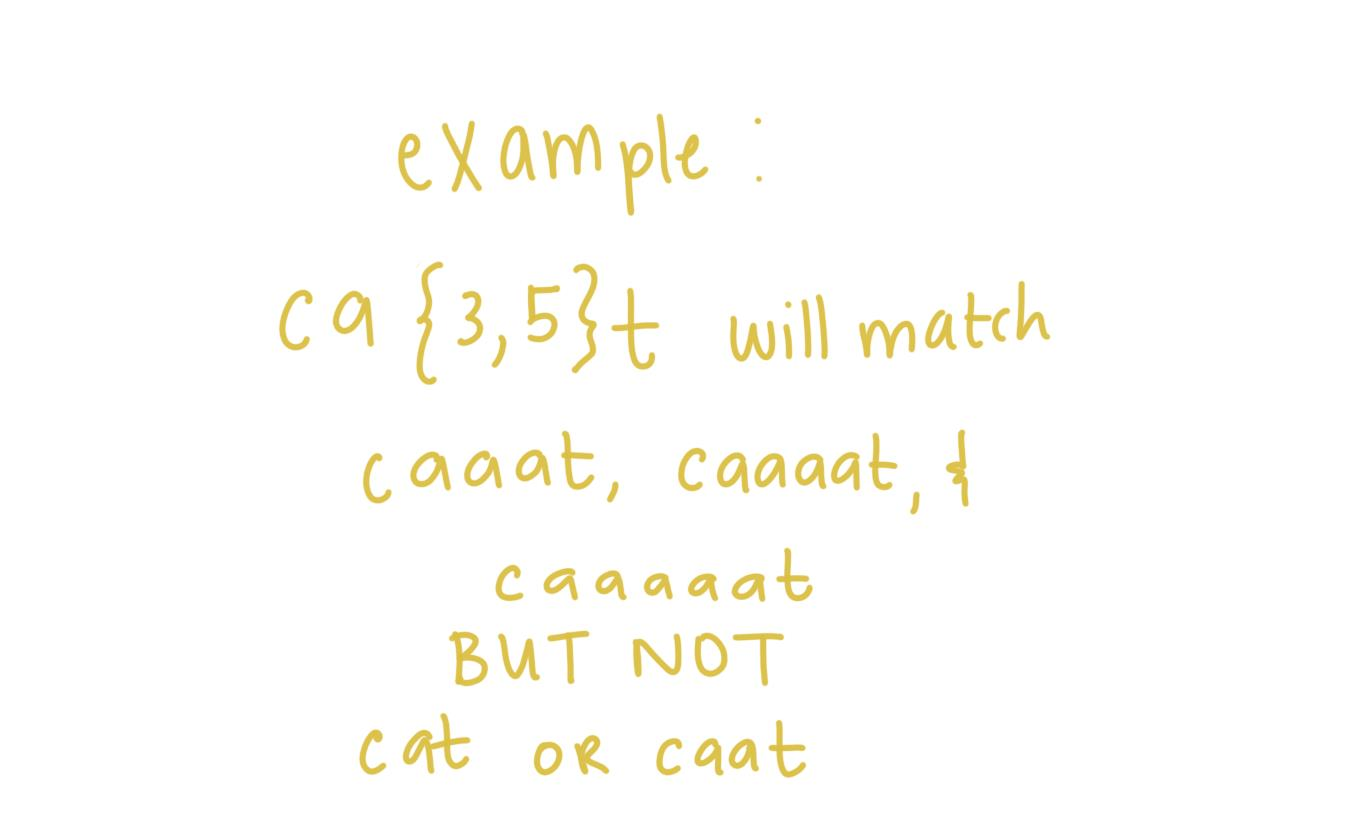 example :
ca{3,5}t will match
caaat, caaaat, &
caaaaat
BUT NOT
cat OR caat